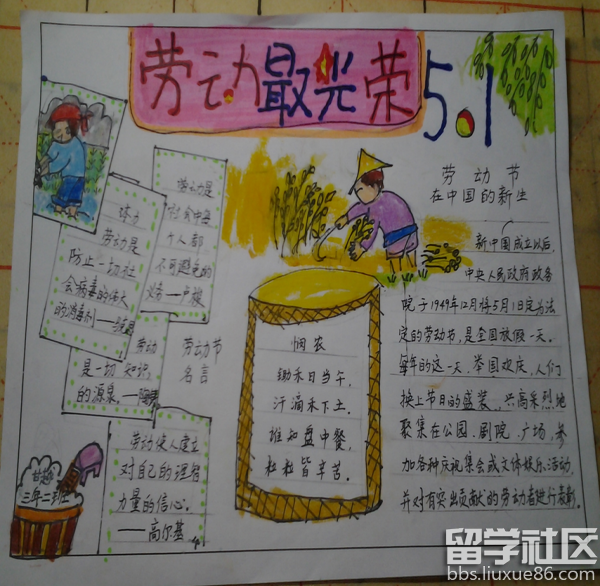 劳动最光荣
5.1
劳动节
在中国的新生
新中国成立以后,
中央人民政府政务
院于1949年12月将5月1日定为法
定的劳动节,是全国放假一天。
每年的这一天,举国欢庆,人们
换上节日的盛装,兴高采烈地
聚集在公园、剧院、广场,参
加各种庆祝集会或文体娱乐活动,
并对有突出贡献的劳动者进行表彰。
劳动是
社会中每
个人都
不可避免的
义务——卢梭
体力
劳动是
防止一切社
会病毒的伟大
的消毒剂——
劳动
是一切知识
的源泉。——陶铸
劳动节
名言
劳动使人建立
对自己的理智
力量的信心。
——高尔基
悯农
锄禾日当午,
汗滴禾下土。
谁知盘中餐,
粒粒皆辛苦。
三年二班
留学社区
bbs.liuxue86.com